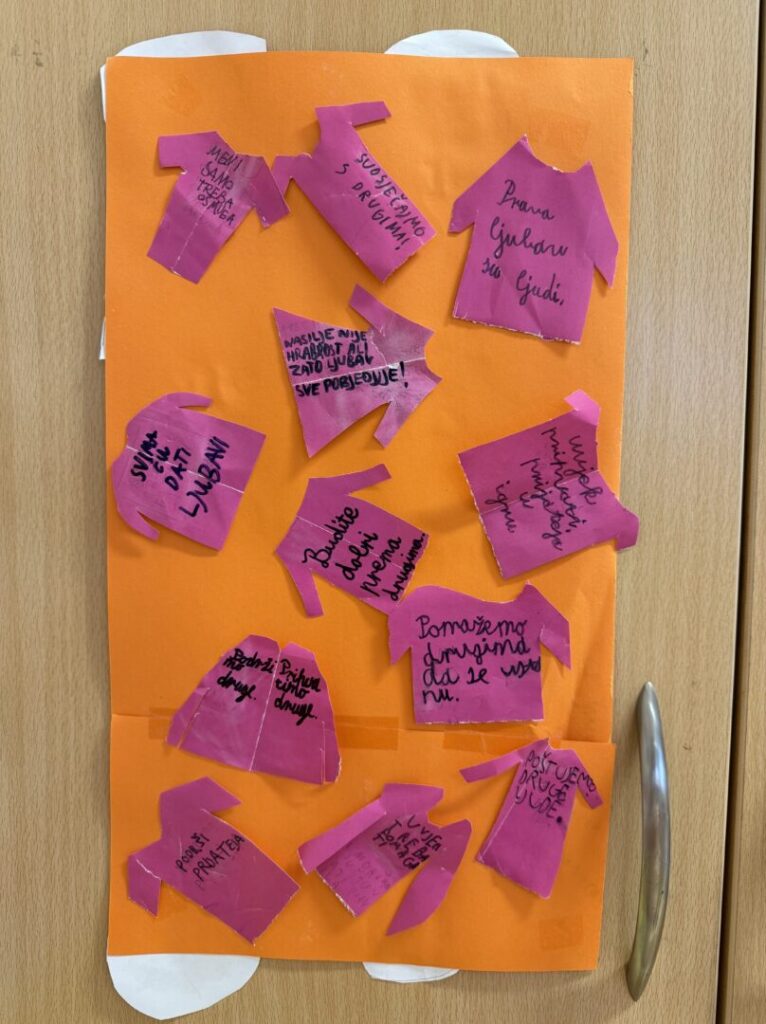 MENI
SAMO
TREBA
OSMJEH.
SUOSJEĆAJMO
S DRUGIMA!
Prava
ljubav
su ljudi.
NASILJE NIJE
HRABROST ALI
ZATO LJUBAV
SVE POBJEĐUJE!
SVIMA
ĆU
DATI
LJUBAVI
uvjek
prihvati
u
igru
Budite
dobri
prema
drugima.
Pomažemo
drugima
da se
nu.
Podrži
mo
druge.
Prihva
timo
druge.
POŠTUJEMO
DRUGE
LJUDE.
PODRŽI
PRIJATELJA
UVJEK
TREBA
POMAGATI